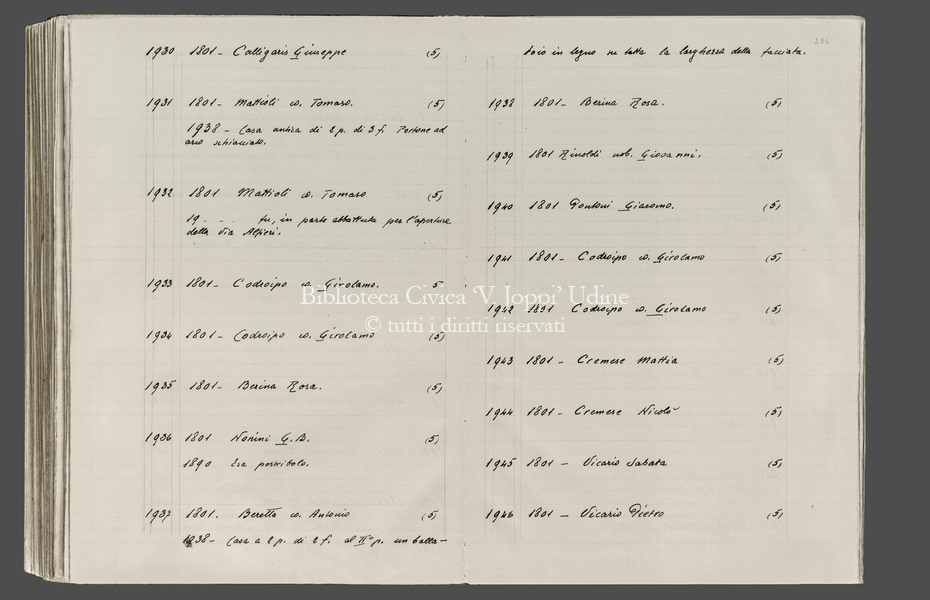 1930 1801 - Calligaris Giuseppe (5)
1931 1801 - Mattioli co. Tomaso. (5)
1938 - Casa antica di 2 p. di 3 f. Portone ad
arco schiacciato.
1932 1801 Mattioli co. Tomaso (5)
19 - . . fu, in parte abbattuta per l'apertura
della Via Alfieri.
1933 1801 - Codroipo co. Girolamo. 5
1934 1801 - Codroipo co. Girolamo (5)
1935 1801 - Berina Rosa. (5)
1936 1801 Nonini G. B. (5)
1890 Era postribolo.
1937 1801. Beretta co. Antonio (5)
1938 - Casa a 2 p. di 2 f. al II° p. un balla-
294
toio in legno su tutta la larghezza della facciata.
1938 1801 - Berina Rosa. (5)
1939 1801 Rinoldi nob. Giovanni. (5)
1940 1801 Pontoni Giacomo. (5)
1941 1801 - Codroipo co. Girolamo (5)
1942 1801 Codroipo co. Girolamo (5)
1943 1801 - Cremese Mattia (5)
1944 1801 - Cremese Nicolò (5)
1945 1801 - Vicario Sabata (5)
1946 1801 - Vicario Pietro (5)
Biblioteca Civica 'V. Joppi' Udine
© tutti i diritti riservati